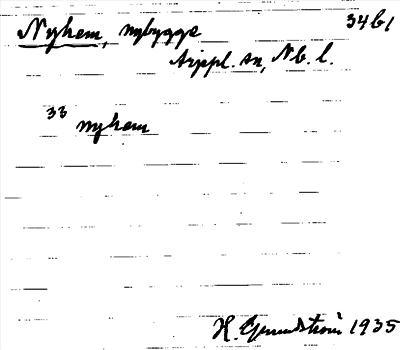 Nyhem, nybygge 34b1
Arjepl. sn, Nb. l.
33 nyhem
H. Grundström 1935